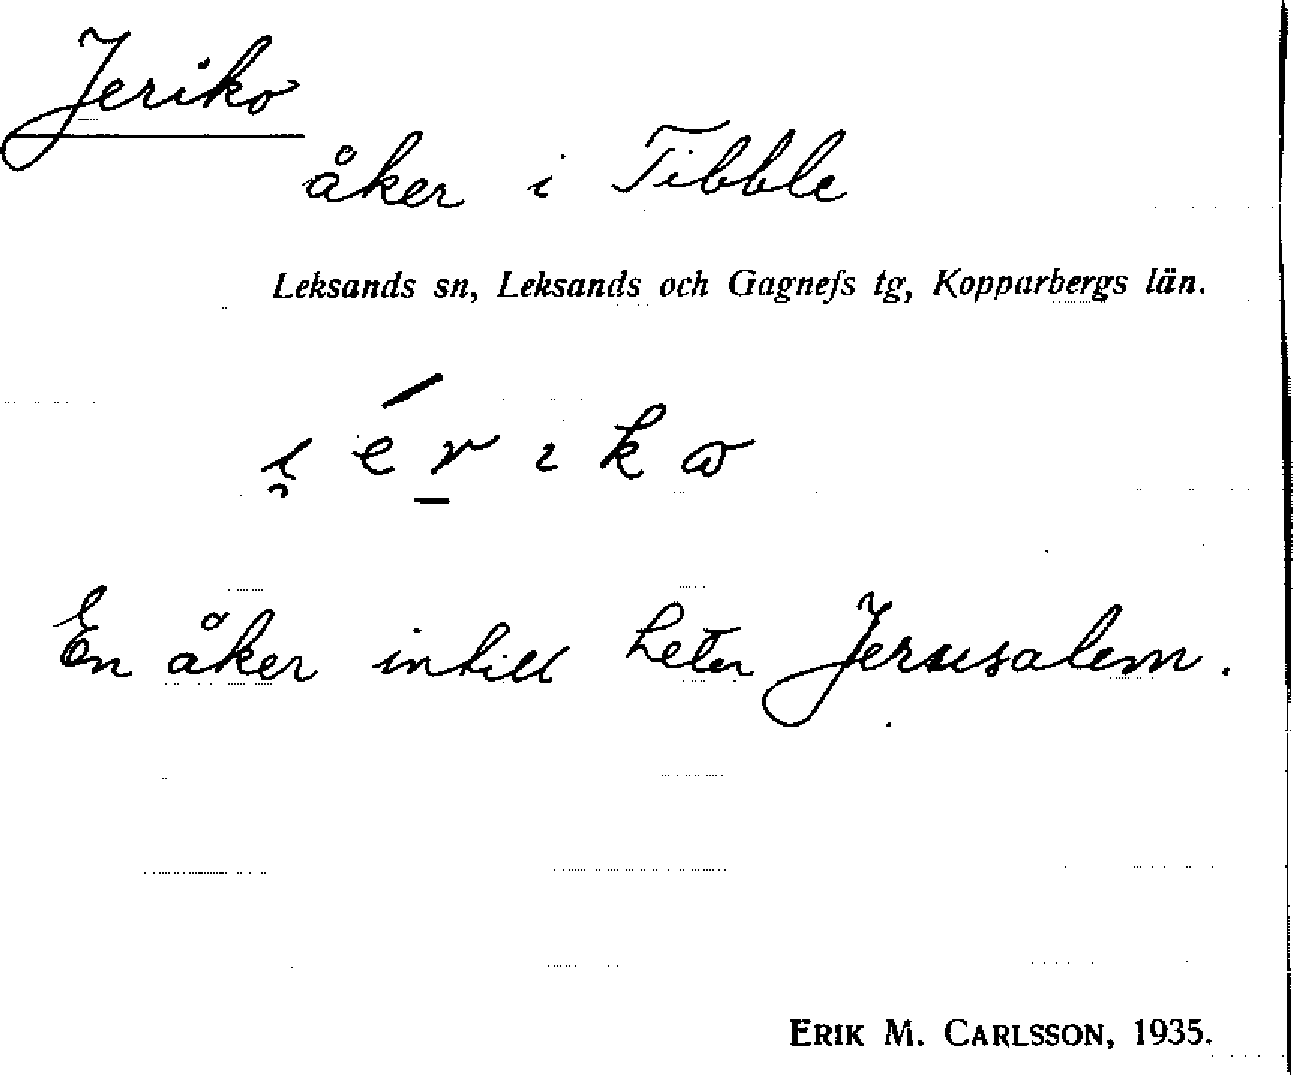 Jeriko
åker i Tibble
Leksands sn, Leksands och Gagnefs tg, Kopparbergs län.
i̯ é r̲ ı k ω
En åker intill heter Jerusalem.
ERIK M. CARLSSON, 1935.